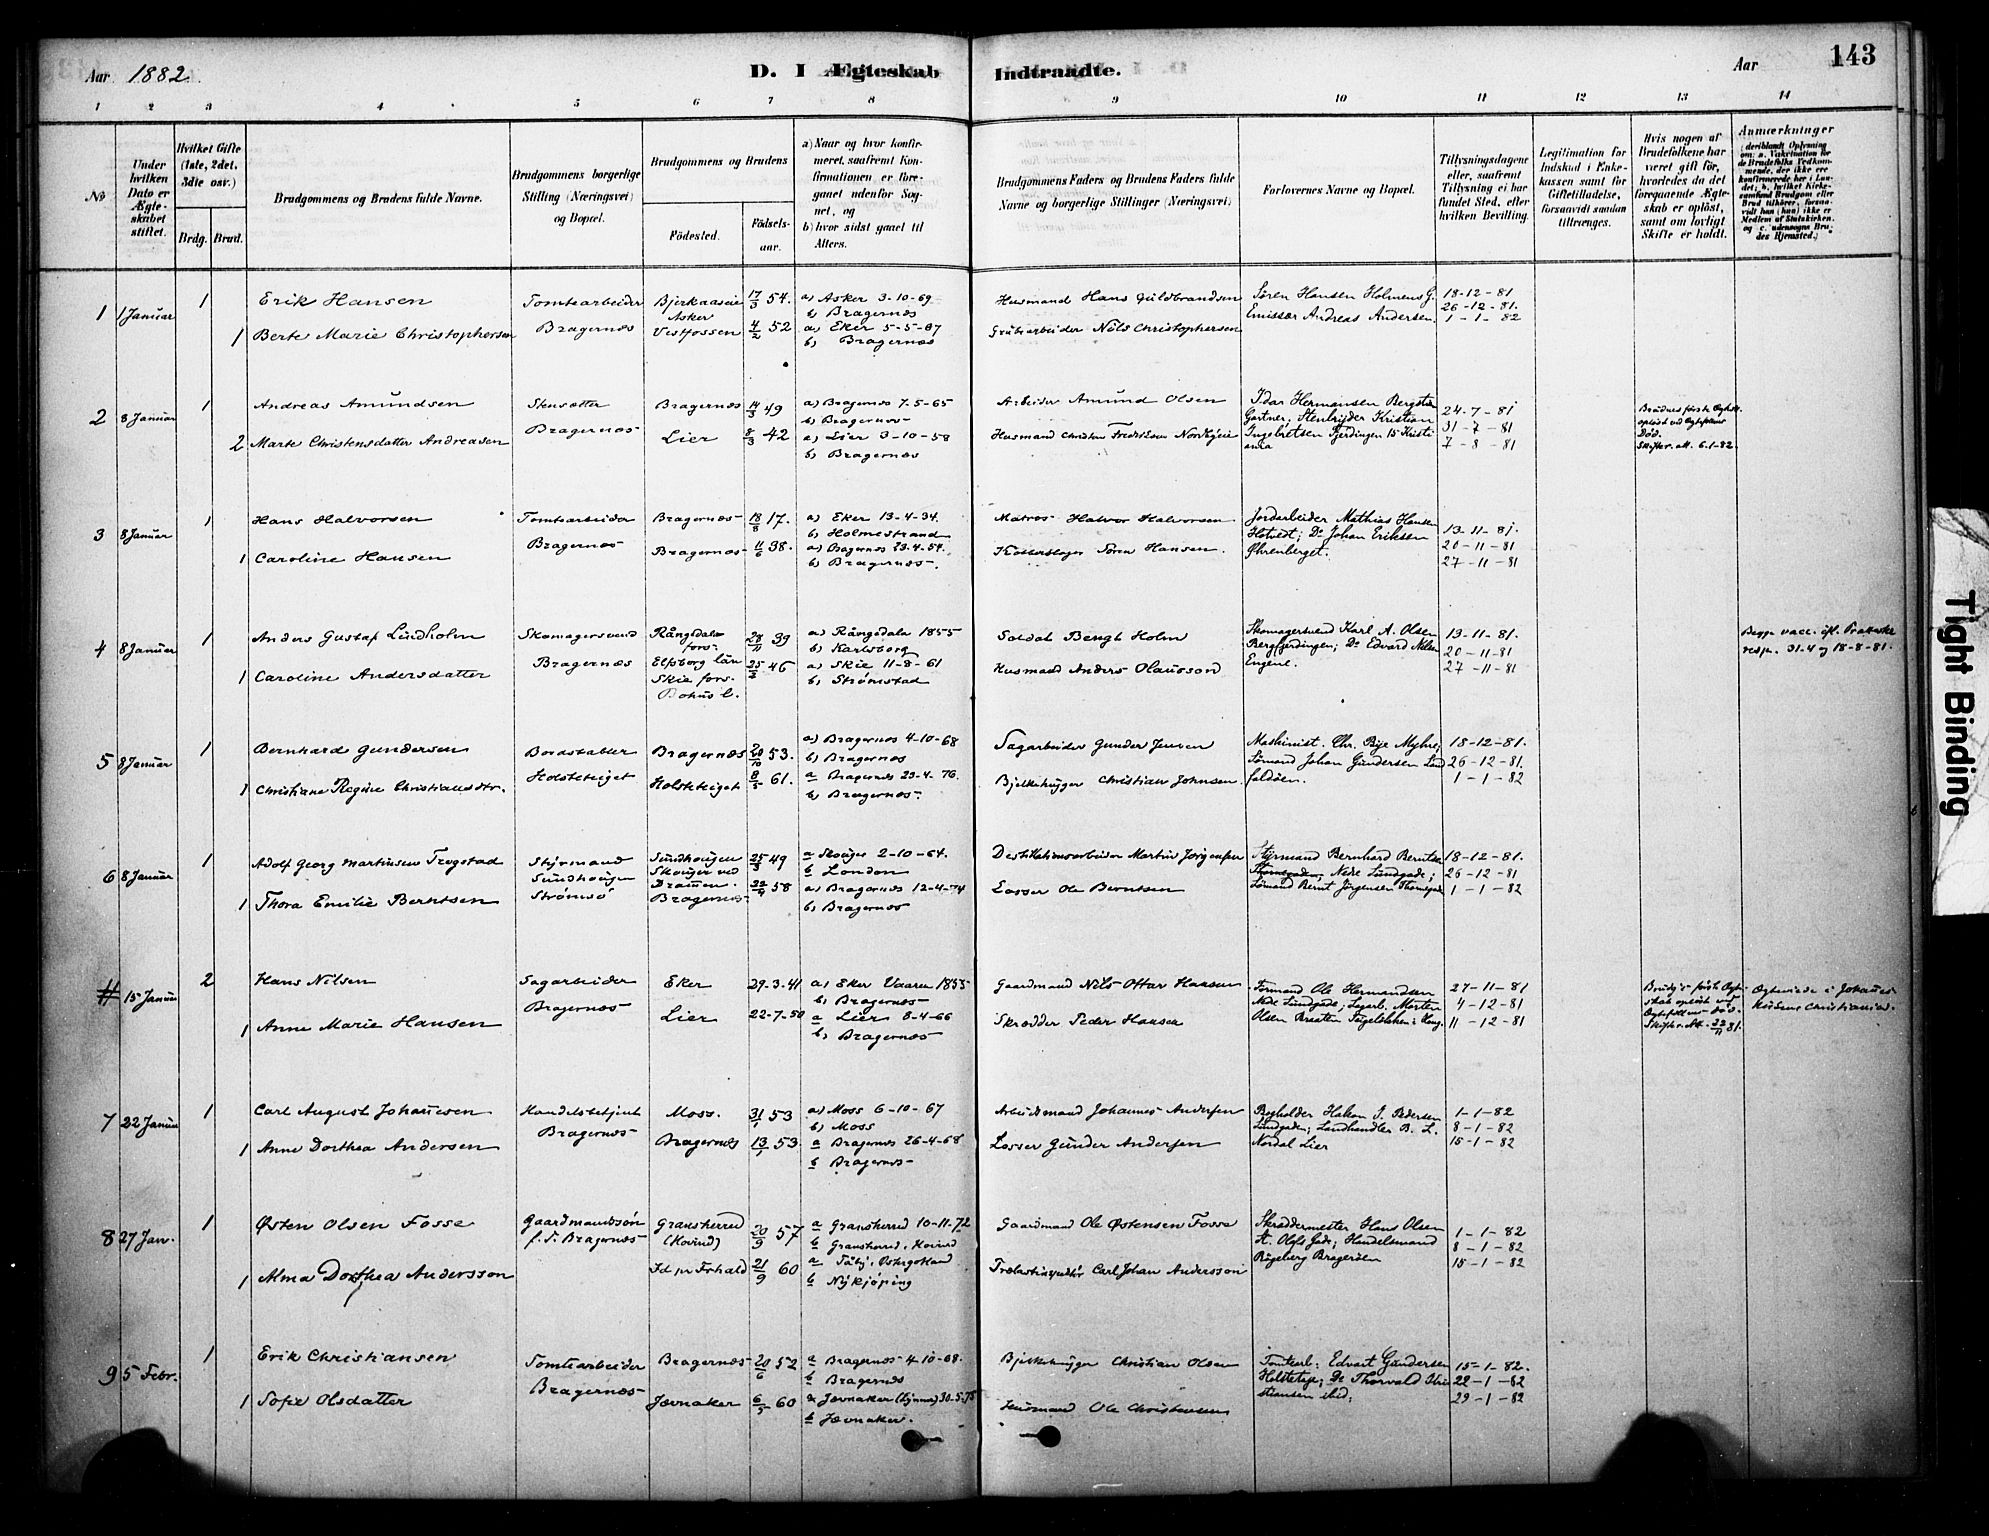 Aar 1882.
D. I Ægteskab Indtraadte.
Aar
143
1 2 3 4 5 6 7 8 9 10 11 12 13 14
№
Under hvilken Dato er Ægteskabet stiftet.
Hvilket Gifte (1ste, 2det, 3die osv.)
Brdg. Brud.
Brudgommens og Brudens fulde Navne.
Brudgommens borgerlige Stilling (Næringsvei) og Bopæl.
Brudgommens og Brudens
Födested.
Födselsaar.
a) Naar og hvor konfirmeret, saafremt Konfirmationen er foregaaet udenfor Sognet, og
b) hvor sidst gaaet til Alters.
Brudgommens Faders og Brudens Faders fulde Navne og borgerlige Stillinger (Næringsvei)
Forlovernes Navne og Bopæl.
Tillysningsdagene eller, saafremt Tillysning ei har fundet Sted, efter hvilken Bevilling.
Legitimation for Indskud i Enkekassen samt for Giftetilladelse, forsaavidt saadan tiltrænges.
Hvis nogen af Brudefolkene har været gift för, hvorledes da det foregaaende Ægteskab er oplöst, samt om lovligt Skifte er holdt.
Anmærkninger
1 1 Januar 1 Erik Hansen Tomtearbeider Bjerkaaseie Asker 17/3 54. a) Asker 3-10-69 b) Bragernæs Husmand Hans Guldbrandsen Søren Hansen Holmens G. 18-12-81
1 Berte Marie Christophersen Bragernæs Vestfossen 4/2 52 a) Eker 5-5-67 b) Bragernæs Grubearbeider Nils Christophersen Emissær Andreas Andersen. 26-12-81. 1-1-82
2 8 Januar 1 Andreas Amundsen Stensætter Bragernæs 14/3 49 a) Bragernæs 7-5-65 b) Bragernæs Arbeider Amund Olsen 24-7-81
2 Marte Christensdatter Andreasen Bragernæs Lier 8/3 42 a) Lier 3-10-58 b) Bragernæs Husmand Christen 31-7-81 7-8-81
Død.
6-1-82.
3 8 Januar 1 Hans Halvorsen Tomtearbeider Bragernæs 18/8 17. a) Eker 13-4-34. b) Holmestrand Matros Halvor Halvorsen Jordarbeider Mathias Hansen 13-11-81
1 Caroline Hansen Bragernæs Bragernæs 11/6 38. a) Bragernæs 23-4-54. b) Bragernæs. Søren Hansen. Do Johan Eriksen Øhrenberget. 20-11-81 27-11-81
4 8 Januar 1 Anders Gustaf Lindholm Skomagersvend Rångedala fors. Elfsborg län 28/11 39 a) Rångedala 1855 b) Karlsborg Soldat Bengt Holm Skomagersvend Karl A. Olsen 13-11-81.
1 Caroline Andersdatter Bragernæs Skie fors. Bohus l. 46 a) Skie 11-8-61 b) Strömstad Husmand Anders Olausson Do Edvard Nilsen Engene. 20-11-81 27-11-81
Begge vacc. ifl. Prætaske
resp. 31-4 og 18-8-81.
5 8 Januar 1 Bernhard Gundersen Bordstabler Bragernæs 20/10 53. a) Bragernæs 4-10-68 b) Bragernæs Sagarbeider Gunder Jensen Maskinist. Chr. Bye Myhre; 18-12-81.
1 Christiane Regine Christiansdtr. Holsteteiget Holsteteiget 8/5 61. a Bragernæs 23-4-76. b) Bragernæs. Bjelkehugger Christian Johnsen Sømand Johan Gundersen 26-12-81. 1-1-82
6 8 Januar 1 Adolf Georg Martinsen Trygstad Styrmand Sundhougen Skouger ved Drammen. 25/3 49 a Skouger 2-10-64. b London Destillationsarbeider Martin Jørgensen Styrmand Bernhard Berntsen 18-12-81.
1 Thora Emilie Berntsen Sundhougen Strømsø Bragernæs 58 a) Bragernæs 12-4-74 b) Bragernæs Losser Ole Berntsen Nedre Lundgade; Sømand Bernt Jørgensen 26-12-81 1-1-82
# 15 Januar 2 Hans Nilsen Sagarbeider Eker 29-3-41 a) Eker Vaaren 1855 b) Bragernæs Gaardmand Nils Ottar Hansen Formand Ole Hermandsen 27-11-81
1 Anne Marie Hansen Bragernæs Lier 22-7-50 a Lier 8-4-66 b) Bragernæs Skrædder Peder Hansen Nedre Lundgade; Morten Olsen Braaten 4-12-81 11-12-81
7 22 Januar 1 Carl August Johannesen Handelsbetjent Moss. 31/1 53 a) Moss 6-10-67 b) Moss Arbeidsmand Johannes Andersen Bogholder Hakon J. Pedersen 1-1-82
1 Anne Dorthea Andersen Bragernæs Bragernæs 13/1 53 a Bragernæs 26-4-68 b Bragernæs Losser Gunder Andersen Lundgaden; Landhandler B. L. Nordal Lier 8-1-82 15-1-82
8 27 Jan. 1 Østen Olsen Fosse Gaardmandssøn f. T. Bragernæs Gransherred (Hovind) 20/9 57 a Gransherred 10-11-72 b Gransherred, Hovind Gaardmand Ole Østensen Fosse Skræddermester Hans Olsen 1-1-82
1 Alma Dorthea Andersson Id pr Frhald 21/9 60 a Tåby, Ostergotland b Nykjöping Carl Johan Andersson St. Olafs Gade; Handelsmand Røgeberg Bragerøen 8-1-82 15-1-82
9 5 Febr. 1 Erik Christiansen Tomtearbeider Bragernæs 20/6 52 a Bragernæs 4-10-68. b Bragernæs Bjelkehugger Christian Olsen Tomtearb. Edvart Gundersen 15-1-82.
1 Sofie Olsdatter Bragernæs Jævnaker 6/5 60 a Jævnaker 30-5-75 b Jævnaker. Husmand Ole Christensen Do Thorvald Christiansen ibid; 22-1-82 29-1-82
Tight Binding